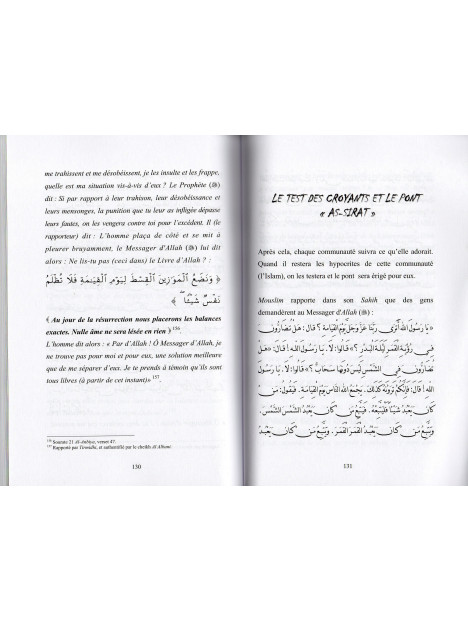 me trahissent et me désobéissent, je les insulte et les frappe,
quelle est ma situation vis-à-vis d'eux ? Le Prophète (ﷺ)
dit : Si par rapport à leur trahison, leur désobéissance et
leurs mensonges, la punition que tu leur as infligée dépasse
leurs fautes, on les vengera contre toi pour l'excédent. Il (le
rapporteur) dit : L'homme plaça de côté et se mit à
pleurer bruyamment, le Messager d'Allah (ﷺ) lui dit
alors : Ne lis-tu pas (ceci dans) le Livre d'Allah ? :
﴿ وَنَضَعُ ٱلْمَوَٰزِينَ ٱلْقِسْطَ لِيَوْمِ ٱلْقِيَٰمَةِ فَلَا تُظْلَمُ
نَفْسٌ شَيْـًٔا ﴾
﴾ Au jour de la résurrection nous placerons les balances
exactes. Nulle âme ne sera lésée en rien ﴿ 156
L'homme dit alors : « Par d'Allah ! Ô Messager d'Allah, je
ne trouve pas pour moi et pour eux, une solution meilleure
que de me séparer d'eux. Je te prends à témoin qu'ils sont
tous libres (à partir de cet instant)» 157
156 Sourate 21 Al-Anbiya, verset 47.
157 Rapporté par Tirmidhi, et authentifié par le cheikh Al Albani.
130
LE TEST DES CROYANTS ET LE PONT
« AS-SIRAT »
Après cela, chaque communauté suivra ce qu'elle adorait.
Quand il restera les hypocrites de cette communauté
(l'Islam), on les testera et le pont sera érigé pour eux.
Mouslim rapporte dans son Sahih que des gens
demandèrent au Messager d'Allah (ﷺ) :
«يَا رَسُولَ اللهِ أَنَرَى رَبَّنَا عَزَّ وَجَلَّ يَوْمَ الْقِيَامَةِ؟ قَالَ: هَلْ تُضَارُّونَ
فِي رُؤْيَةِ الْقَمَرِ لَيْلَةَ الْبَدْرِ؟ قَالُوا: لَا، يَا رَسُولَ اللهِ! قَالَ: فَهَلْ
تُضَارُّونَ فِي الشَّمْسِ لَيْسَ دُونَهَا سَحَابٌ؟ قَالُوا: لَا يَا رَسُولَ
اللهِ! قَالَ: فَإِنَّكُمْ تَرَوْنَهُ كَذَلِكَ. يَجْمَعُ اللهُ النَّاسَ يَوْمَ الْقِيَامَةِ. فَيَقُولُ: مَنْ
كَانَ يَعْبُدُ شَيْئًا فَلْيَتَّبِعْهُ. فَيَتَّبِعُ مَنْ كَانَ يَعْبُدُ الشَّمْسَ الشَّمْسَ.
وَيَتَّبِعُ مَنْ كَانَ يَعْبُدُ الْقَمَرَ الْقَمَرَ. وَيَتَّبِعُ مَنْ كَانَ يَعْبُدُ
131